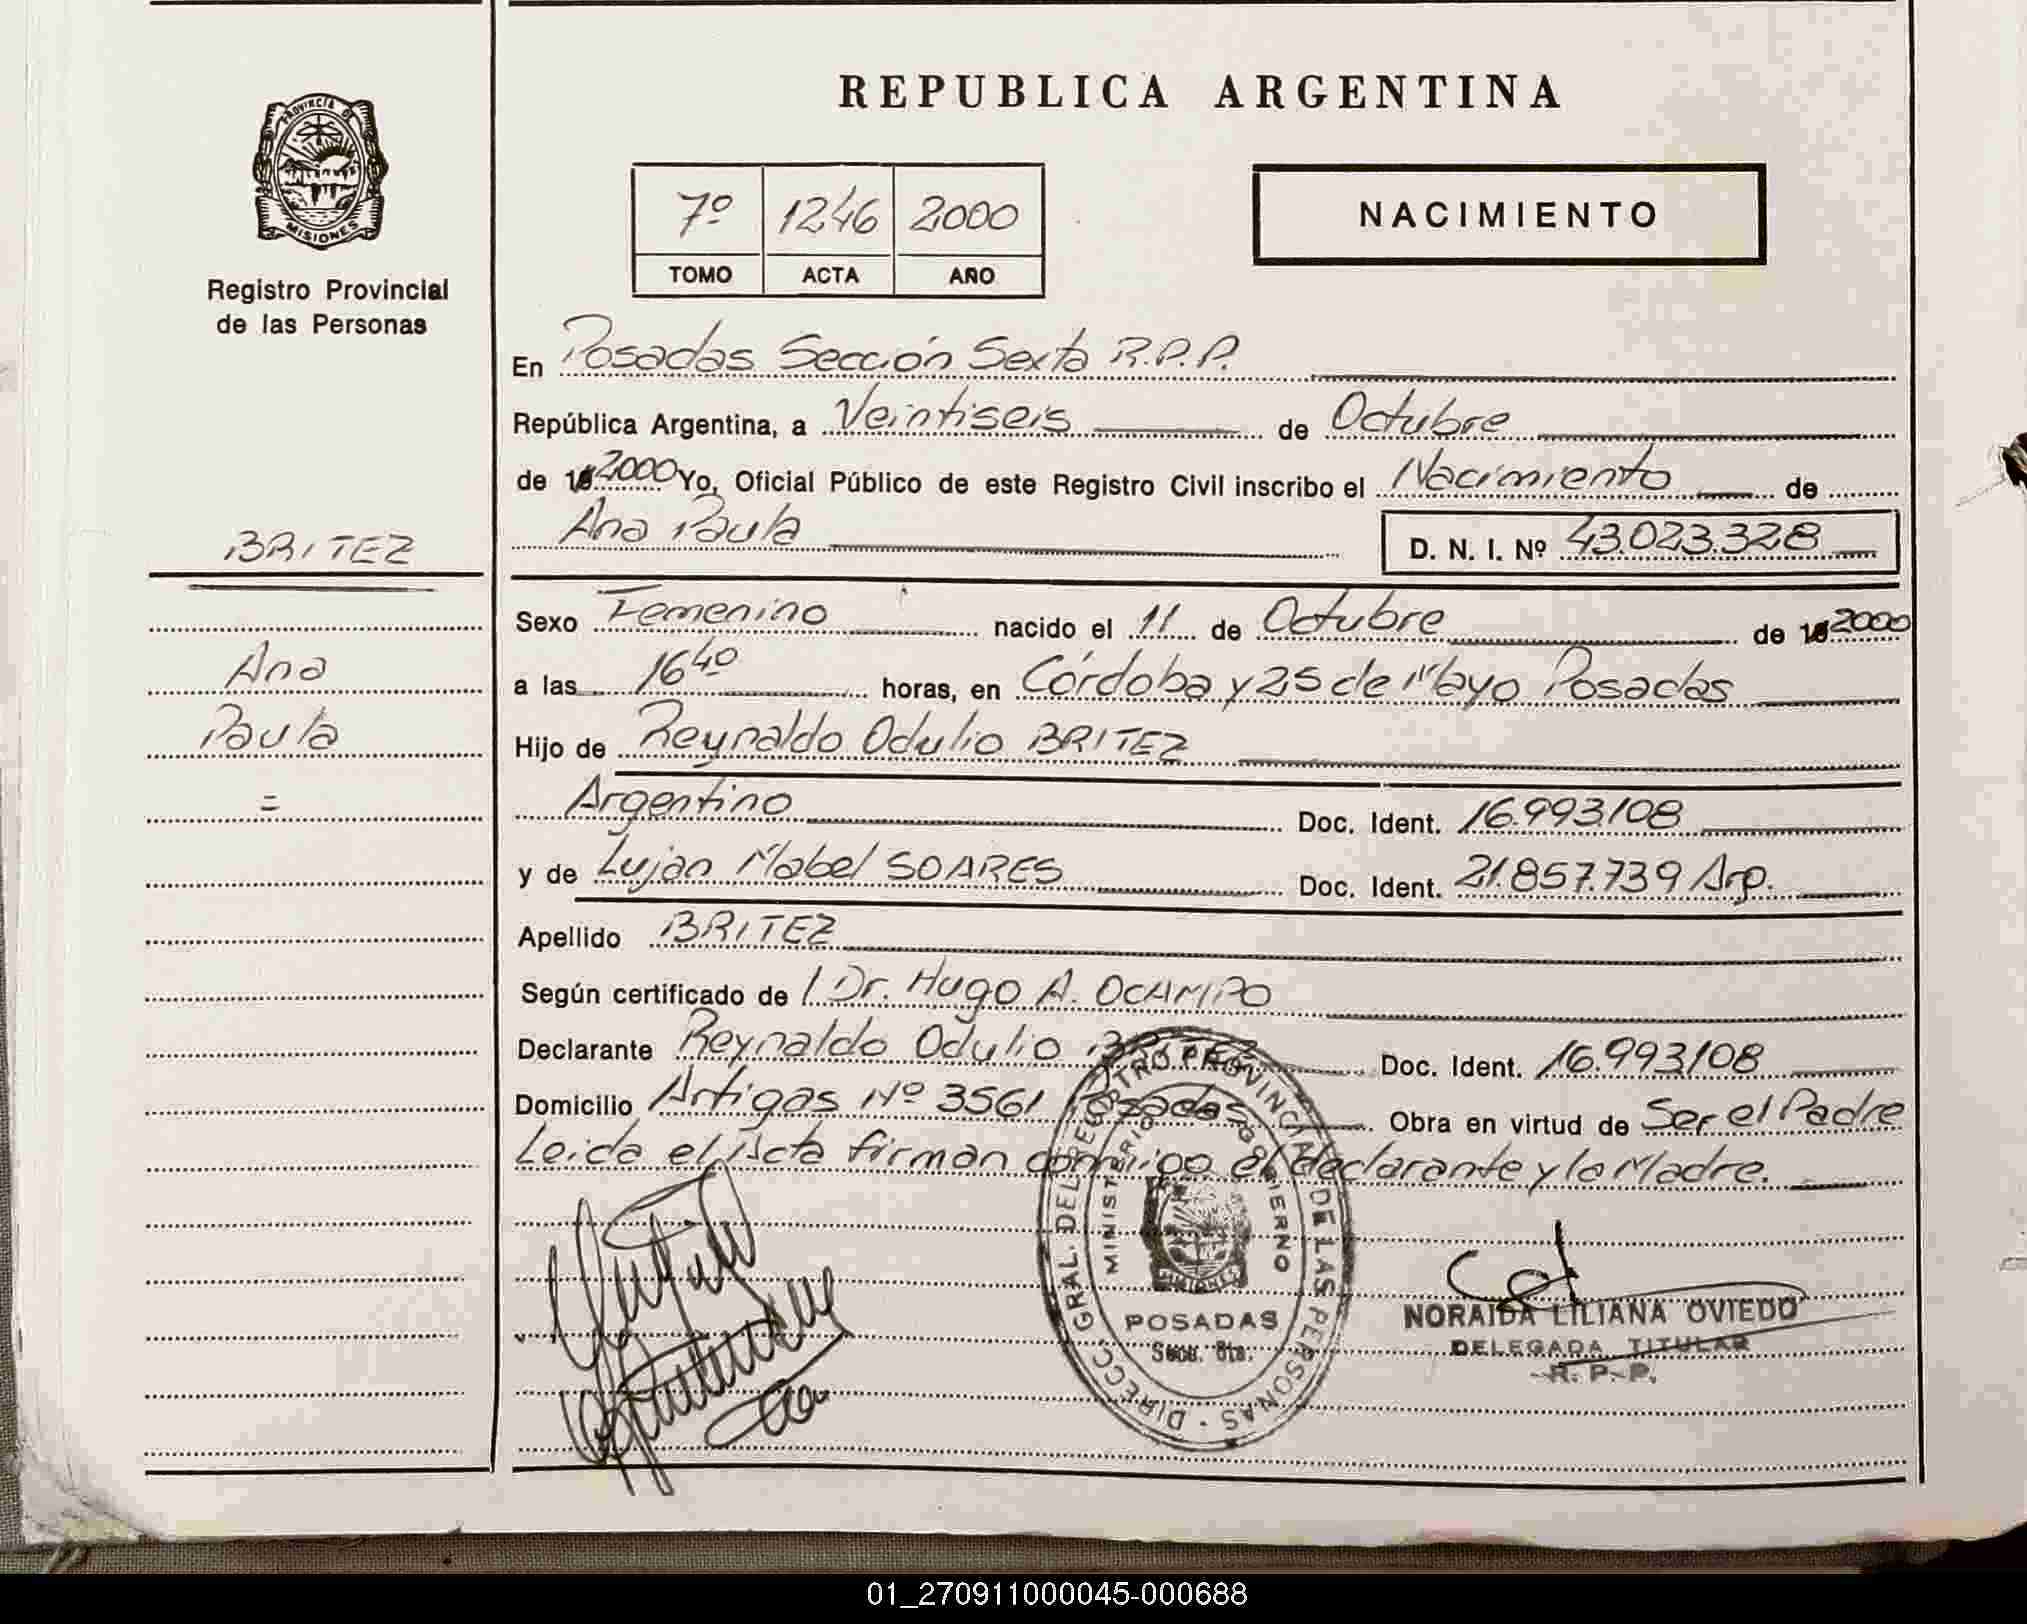 REPUBLICA ARGENTINA
PROVINCIA DE
MISIONES
Registro Provincial
de las Personas
7º 1246 2000
TOMO ACTA AÑO
NACIMIENTO
En Posadas Sección Sexta R.P.P.
República Argentina, a Veintiseis de Octubre
de 2000 Yo, Oficial Público de este Registro Civil inscribo el Nacimiento de
Ana Paula D. N. I. Nº 43.023.328
BRITEZ
Ana
Paula
=
Sexo Femenino nacido el 11 de Octubre de 2000
a las 16 40 horas, en Córdoba y 25 de Mayo Posadas
Hijo de Reynaldo Odulio BRITEZ
Argentino Doc. Ident. 16.993.108
y de Lujan Mabel SOARES Doc. Ident. 21.857.739 Arg.
Apellido BRITEZ
Según certificado de l Dr. Hugo A. OCAMPO
Declarante Reynaldo Odulio BRITEZ Doc. Ident. 16.993.108
Domicilio Artigas Nº 3561 Posadas Obra en virtud de Ser el Padre
Leida el Acta firman conmigo el declarante y la Madre.
DIRECC. GRAL. DEL REGISTRO PROVINCIAL DE LAS PERSONAS
MINISTERIO GOBIERNO
MISIONES
POSADAS
Secc. 6ta.
NORAIDA LILIANA OVIEDO
DELEGADA TITULAR
R. P. P.
01_270911000045-000688